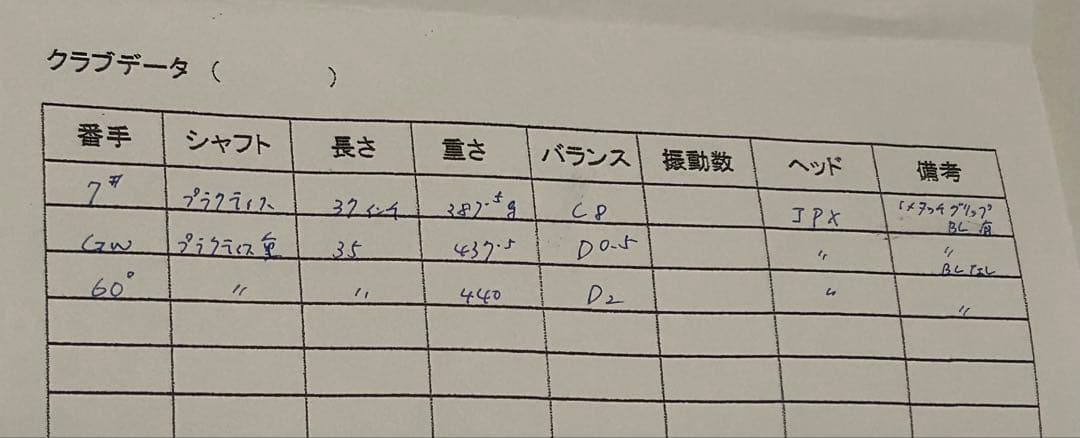 クラブデータ (　　　　)
番手 シャフト 長さ 重さ バランス 振動数 ヘッド 備考
7# プラクティス 37インチ 387.5g C8 JPX グリップ
BL有
GW プラクティス重 35 437.5 D0.5 〃 〃
BLなし
60° 〃 〃 440 D2 〃 〃